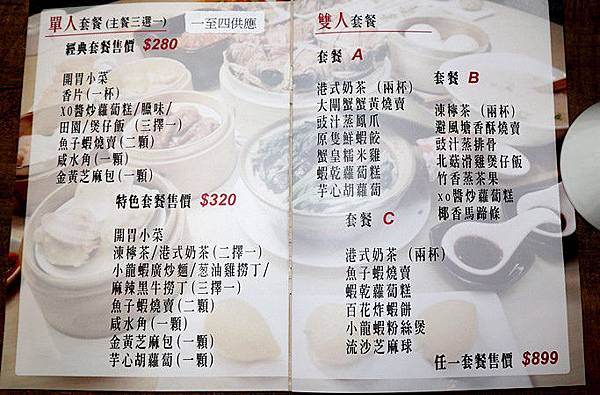 單人套餐(主餐三選一)
一至四供應
經典套餐售價 $280
開胃小菜
香片(一杯)
xo醬炒蘿蔔糕/臘味/
田園/煲仔飯(三擇一)
魚子蝦燒賣(二顆)
咸水角(一顆)
金黃芝麻包(一顆)
特色套餐售價 $320
開胃小菜
凍檸茶/港式奶茶(二擇一)
小龍蝦廣炒麵/蔥油雞撈丁/
麻辣黑牛撈丁(三擇一)
魚子蝦燒賣(二顆)
咸水角(一顆)
金黃芝麻包(一顆)
芋心胡蘿蔔(一顆)
雙人套餐
套餐 A
港式奶茶(兩杯)
大閘蟹蟹黃燒賣
豉汁蒸鳳爪
原隻鮮蝦餃
蟹皇糯米雞
蝦乾蘿蔔糕
芋心胡蘿蔔
套餐 B
凍檸茶(兩杯)
避風塘香酥燒賣
豉汁蒸排骨
北菇滑雞煲仔飯
竹香蒸茶果
xo醬炒蘿蔔糕
椰香馬蹄條
套餐 C
港式奶茶(兩杯)
魚子蝦燒賣
蝦乾蘿蔔糕
百花炸蝦餅
小龍蝦粉絲煲
流沙芝麻球
任一套餐售價 $899